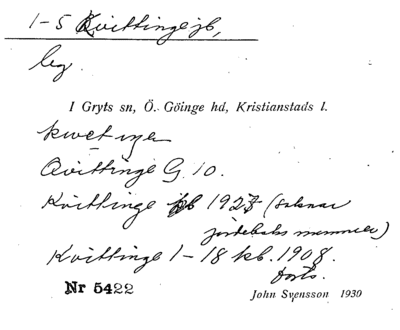 1-5 Kvittinge jb,
by.
I Gryts sn, Ö. Göinge hd, Kristianstads l.
kwetiŋe
Qvittinge G. 10.
Kvittinge jb 1927 (saknar
jordeboksnummer)
Kvittinge 1-18 kb. 1908.
Nr 5422
John Svensson 1930